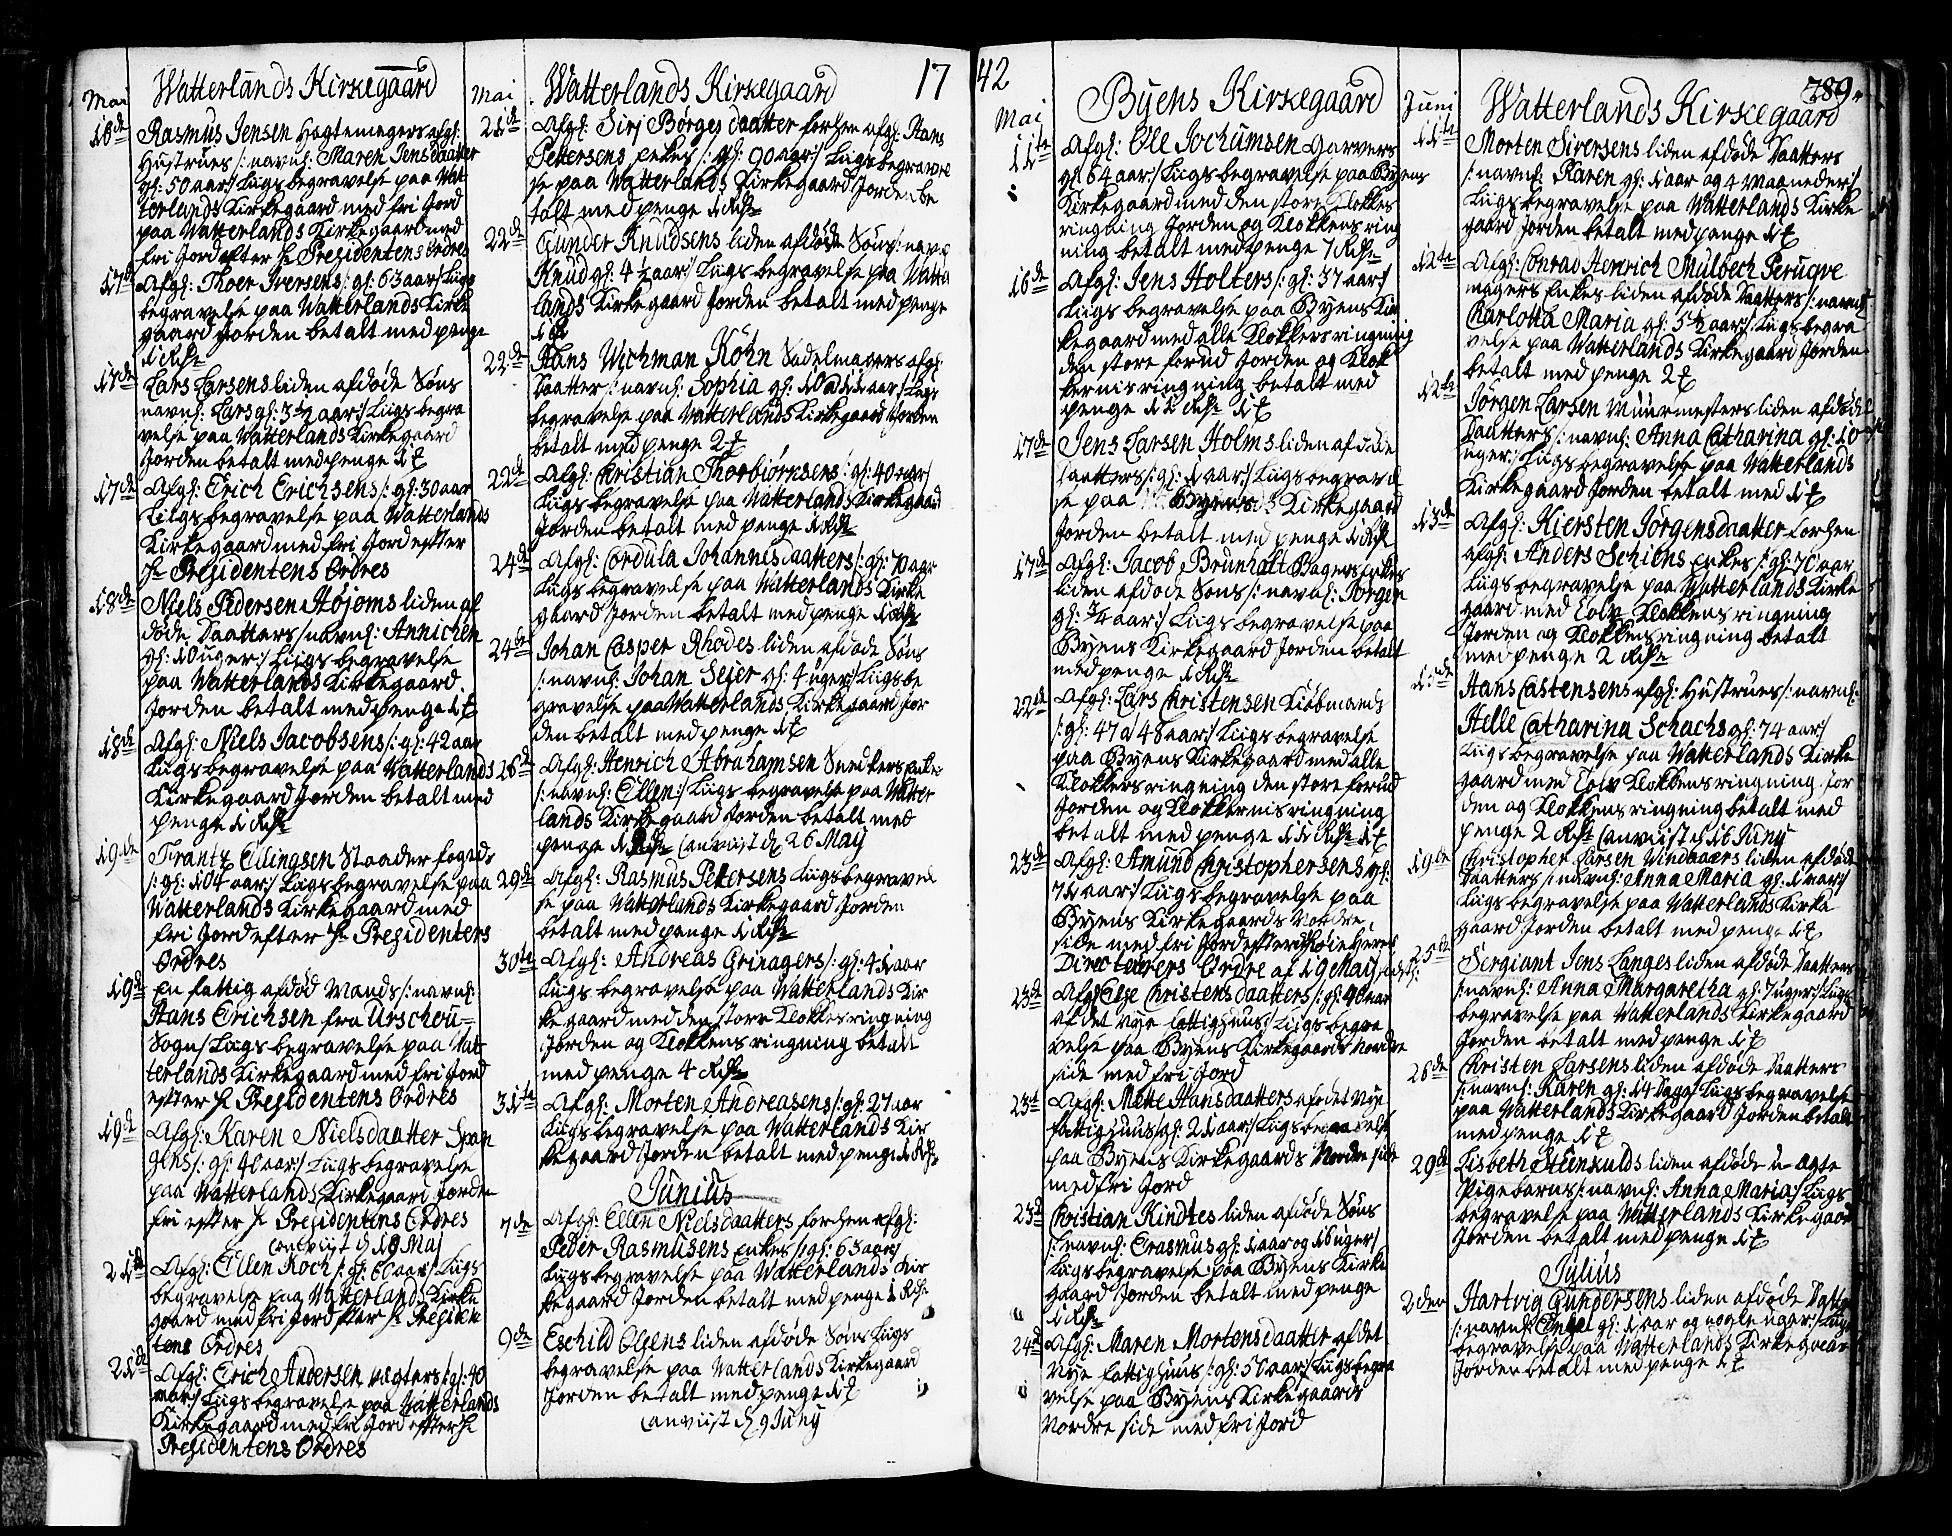 Watterlands Kirkegaard
Mai
16de Rasmus Jensen Hægtemagers afgl:
Hustrues /: navnl: Maren Jensdaatter
gl: 50 aar:/ Liigs begravelse paa Wat
terlands Kirkegaard med fri Jord
paa Watterlands Kirkegaard med
fri Jord efter Hr Presidentens Ordres
17de Afgl: Thoer Iversens /: gl: 63 aar:/ Liigs
begravelse paa Watterlands Kirke
gaard Jorden betalt med penge
1 Rdr
17de Lars Larsens liden afdøde Søns
navnl: Lars gl: 3 1/2 aar:/ Liigs begra
velse paa Watterlands Kirkegaard
Jorden betalt med penge
17de Afgl: Erich Erichsens /: gl: 30 aar
Liigs begravelse paa Watterlands
Kirkegaard med fri Jord efter
Hr Presidentens Ordres
18de Niels Pedersen Højoms liden af
døde Daatters /: navnl: Annichen
gl: 10 uger:/ Liigs begravelse
paa Watterlands Kirkegaard
Jorden betalt med penge
18de Afgl: Niels Jacobsens /: gl: 42 aar
Liigs begravelse paa Watterlands
Kirkegaard Jorden betalt med
penge 1 Rdr
19de Frantz Ellingsen Staader fogeds
/: gl: 104 aar:/ Liigs begravelse paa
Watterlands Kirkegaard med
fri Jord efter Hr Presidentens
Ordres
19de En fattig afdød Mands /: navnl:
Hans Erichsen fra Urschou
Sogn/ Liigs begravelse paa Wat
terlands Kirkegaard med fri Jord
efter Hr Presidentens Ordres
19de Afgl: Karen Nielsdaatter Span
gens /: gl: 40 aar:/ Liigs begravelse
paa Watterlands Kirkegaard Jorden
fri efter Hr Presidentens Ordres
anviist d 18 Maj
21de Afgl: Ellen Koch /: gl: 60 aar:/ Liigs
begravelse paa Watterlands Kirke
gaard med fri Jord efter Hr Presiden
tens Ordres
21de Afgl: Erich Andersen Vægters /: gl: 40
aar:/ Liigs begravelse paa Watterlands
Kirkegaard med fri Jord efter Hr
Presidentens Ordres
Mai
Watterlands Kirkegaard
17
21de Afgl: Sirj Børgesdaatter forhen afgl: Hans
Pettersens Enkes /: gl: 90 aar:/ Liigs begravel
se paa Watterlands Kirkegaard Jorden be
talt med penge 1 Rdr
22de Gunder Knudsens liden afdøde Søns /: navnl
Knud gl: 4 1/2 aar:/ Liigs begravelse paa Watter
lands Kirkegaard Jorden betalt med penge
22de Hans Wichman Köhn Sadelmagers afgl:
Daatter /: navnl: Sophia gl: 10 a 11 aar:/ Liigs
begravelse paa Watterlands Kirkegaard Jorden
betalt med penge 2
22de Afgl: Christian Thorbiørnsens /: gl: 40 aar/
Liigs begravelse paa Watterlands Kirkegaard
Jorden betalt med penge 1 Rdr
24de Afgl: Cordula Johannesdaatters /: gl: 70 aar
Liigs begravelse paa Watterlands Kirke
gaard Jorden betalt med penge 1 Rdr
24de Johan Casper Rhodes liden afdøde Søns
/: navnl: Johan Seier gl: 4 uger:/ Liigs be
gravelse paa Watterlands Kirkegaard Jor
den betalt med penge
26de Afgl: Henrich Abrahamsen Snedkers Enke
/: navnl: Ellen:/ Liigs begravelse paa Watter
lands Kirkegaard Jorden betalt med
penge 1 Rdr anviist d 26 Maij
29de Afgl: Rasmus Pettersens Liigs begravel
se paa Watterlands Kirkegaard Jorden
betalt med penge 1 Rdr
30te Afgl: Andreas Grinagers /: gl: 41 aar
Liigs begravelse paa Watterlands Kir
kegaard med den store Klokkes ringning
Jorden og Klokkens ringning betalt
med penge 4 Rdr
31te Afgl: Morten Andreasens /: gl: 27 aar
Liigs begravelse paa Watterlands Kir
kegaard Jorden betalt med penge 1 Rdr
Junius
7de Afgl: Ellen Nielsdaatters forhen afgl:
Peder Rasmusens Enkes /: gl: 63 aar/
Liigs begravelse paa Watterlands Kir
kegaard Jorden betalt med penge 1 Rdr
9de Eschild Olsens liden afdøde Søns Liigs
begravelse paa Watterlands Kirkegaard
Jorden betalt med penge
anviist d 9 Junij
42
Mai
Byens Kirkegaard
11te Afgl: Ole Jochumsen Garvers
gl 64 aar:/ Liigs begravelse paa Byens
Kirkegaard med den store Klokkes
ringning Jorden og Klokkens ring
ning betalt med penge 7 Rdr
16de Afgl: Jens Holters /: gl: 37 aar:/
Liigs begravelse paa Byens Kir
kegaard med alle Klokkers ringning
den store forud Jorden og Klok
kernis ringning betalt med
penge 12 Rdr
17de Jens Larsen Holms liden afdøde
Daatters /: gl: 1 aar:/ Liigs begravel
se paa Byens Kirkegaard
Jorden betalt med penge 1 Rdr
17de Afgl: Jacob Brunholt Bagers Enkes
liden afdøde Søns /: navnl: Jørgen
gl: 3/4 aar:/ Liigs begravelse paa
Byens Kirkegaard Jorden betalt
med penge 1 Rdr
22de Afgl: Lars Christensen Kiøbmands
/: gl: 47 a 48 aar:/ Liigs begravelse
paa Byens Kirkegaard med alle
Klokkers ringning den store forud
Jorden og Klokkernis ringning
betalt med penge 11 Rdr
23de Afgl: Amund Christophersens gl:
71 aar:/ Liigs begravelse paa
Byens Kirkegaards Nordre
side med fri Jord efter Høie Herrer
Directeurers Ordre af 19 Maij
23de Afgl: Else Christensdaatters /: gl: 90 aar
af det Nye Fattighuus:/ Liigs begra
velse paa Byens Kirkegaards Nordre
side med fri Jord
23de Afgl: Mette Hansdaatters af det Nye
Fattighuus /: gl: 21 aar:/ Liigs begravelse
paa Byens Kirkegaards Nordre side
med fri Jord
23de Christian Kindtes liden afdøde Søns
/: navnl: Erasmus gl: 1 aar og 16 uger:/
Liigs begravelse paa Byens Kirke
gaard Jorden betalt med penge
1 Rdr
24de Afgl: Maren Mortensdaatter af det
Nye Fattighuus /: gl: 50 aar:/ Liigs begra
velse paa Byens Kirkegaards
Nordre side med fri Jord
Juni
Watterlands Kirkegaard
289
11te Morten Siversens liden afdøde Daatters
/: navnl: Karen gl: 1 aar og 4 Maaneder:/
Liigs begravelse paa Watterlands Kirke
gaard Jorden betalt med penge
12te Afgl: Conrad Henrich Mülbech Peruqve
magers Enkes liden afdøde Daatters /: navnl
Charlotta Maria gl: 5 1/2 aar:/ Liigs begra
velse paa Watterlands Kirkegaard Jorden
betalt med penge 2
12te Jørgen Larsen Muurmesters liden afdøde
Daatters /: navnl: Anna Catharina gl: 10
uger:/ Liigs begravelse paa Watterlands
Kirkegaard Jorden betalt med
13de Afgl: Kiersten Jørgensdaatter forhen
afgl: Anders Schiens Enkes /: gl: 70 aar
Liigs begravelse paa Watterlands Kirke
gaard med Tolv Klokkens ringning
Jorden og Klokkens ringning betalt
med penge 2 Rdr
15de Hans Castensens afgl: Hustrues /: navnl:
Helle Catharina Schachs gl: 74 aar:/
Liigs begravelse paa Watterlands Kirke
gaard med Tolv Klokkens ringning Jor
den og Klokkens ringning betalt med
penge 2 Rdr anviist d 16 Junij
19de Christopher Larsen Vindaaers liden afdøde
Daatters /: navnl: Anna Maria gl: 1 aar:/
Liigs begravelse paa Watterlands Kirke
gaard Jorden betalt med penge
25de Sergiant Jens Langes liden afdøde Daatters
/: navnl: Anna Margaretha gl: 7 uger:/ Liigs
begravelse paa Watterlands Kirkegaard
Jorden betalt med penge
26de Christen Larsens liden afdøde Daatters
/: navnl: Karen gl: 14 Dage/ Liigs begravelse
paa Watterlands Kirkegaard Jorden betalt
med penge
29de Lisbeth Steenkulds liden afdøde u-ægte
Pigebarns /: navnl: Anna Maria/ Liigs
begravelse paa Watterlands Kirkegaard
Jorden betalt med penge
Julius
2den Hartvig Gundersens liden afdøde Datter
/: navnl: Engel gl: 1 aar og nogle uger:/ Liigs
begravelse paa Watterlands Kirkegaard
Jorden betalt med penge